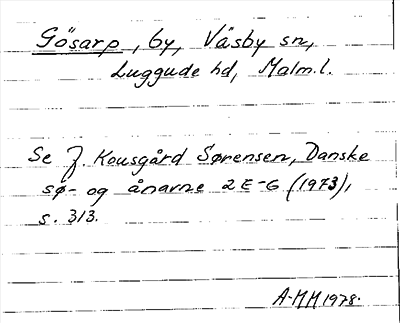 Gösarp, by, Väsby sn,
Luggude hd, Malm.l.
Se J. Kousgård Sørensen, Danske
sø- og ånarne 2 E-G (1973),
s. 313.
A-MM 1978.